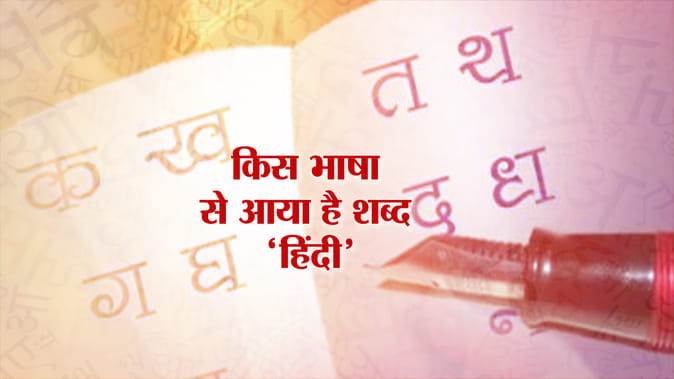 क ख
ग घ
त थ
द ध
किस भाषा
से आया है शब्द
‘हिंदी’